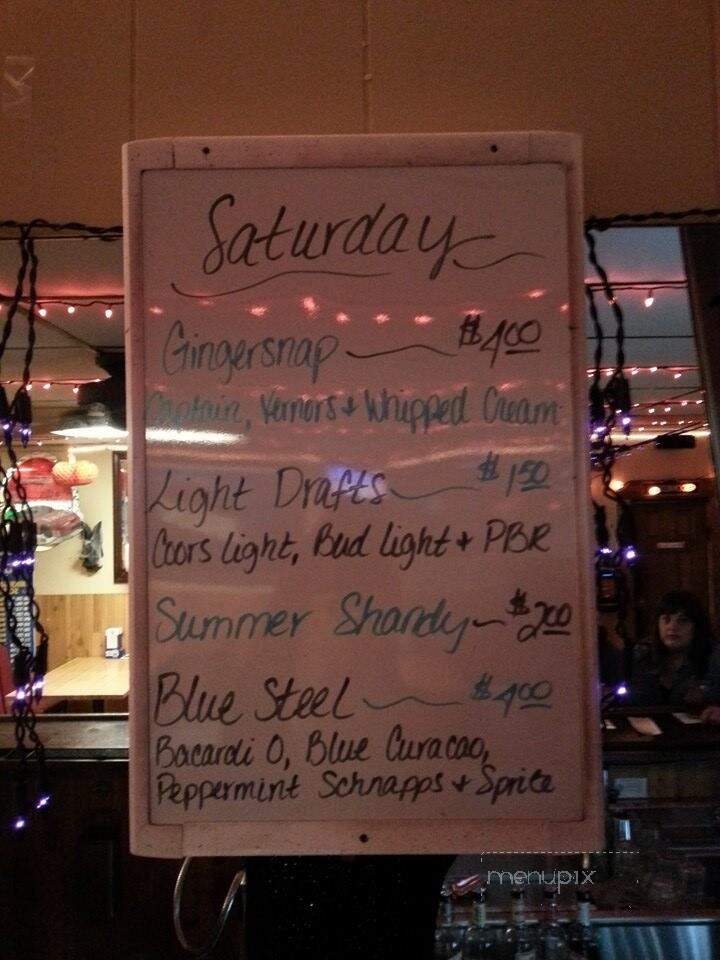 Saturday
Gingersnap $4.00
Captain, Vernors + Whipped Cream
Light Drafts $1.50
Coors Light, Bud Light + PBR
Summer Shandy - $2.00
Blue Steel $4.00
Bacardi O, Blue Curacao,
Peppermint Schnapps + Sprite
menupix